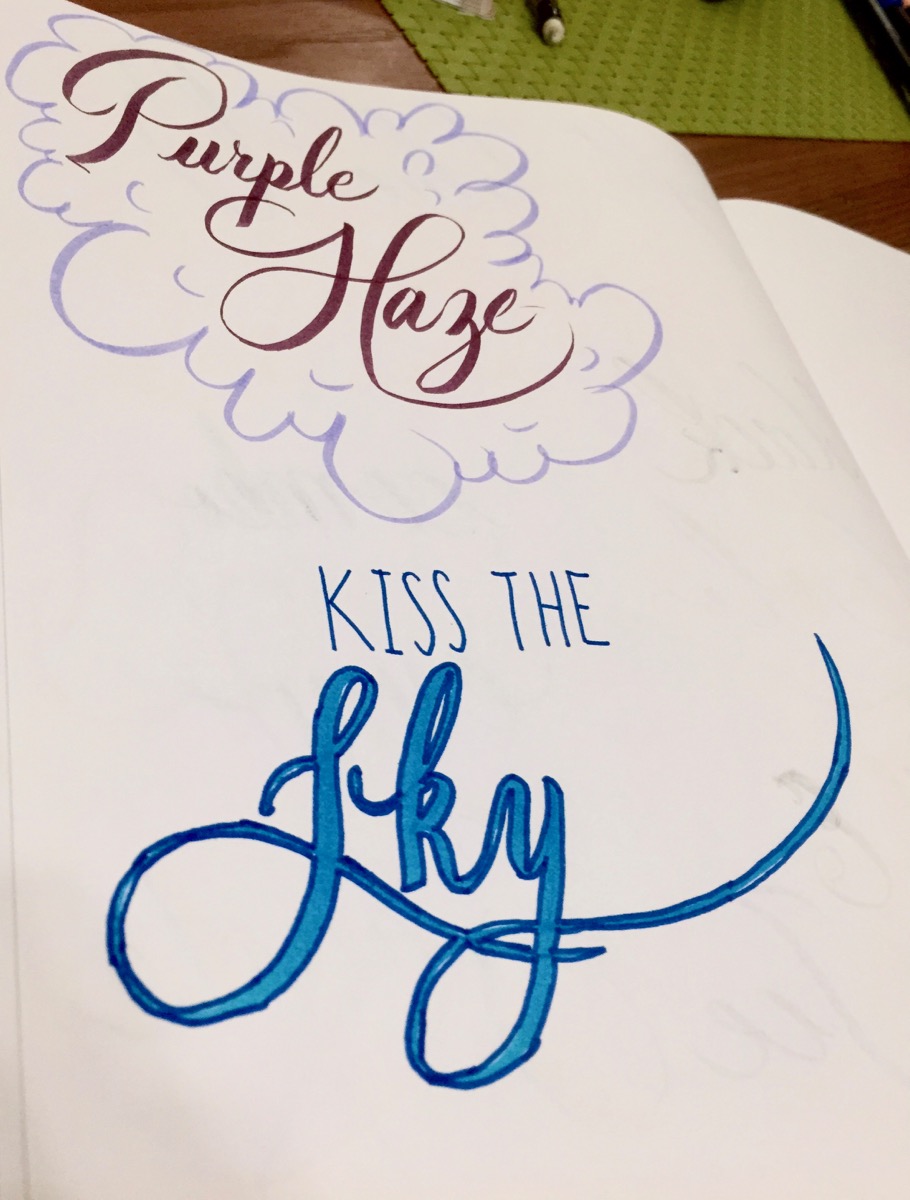 Purple
Haze
KISS THE
Sky